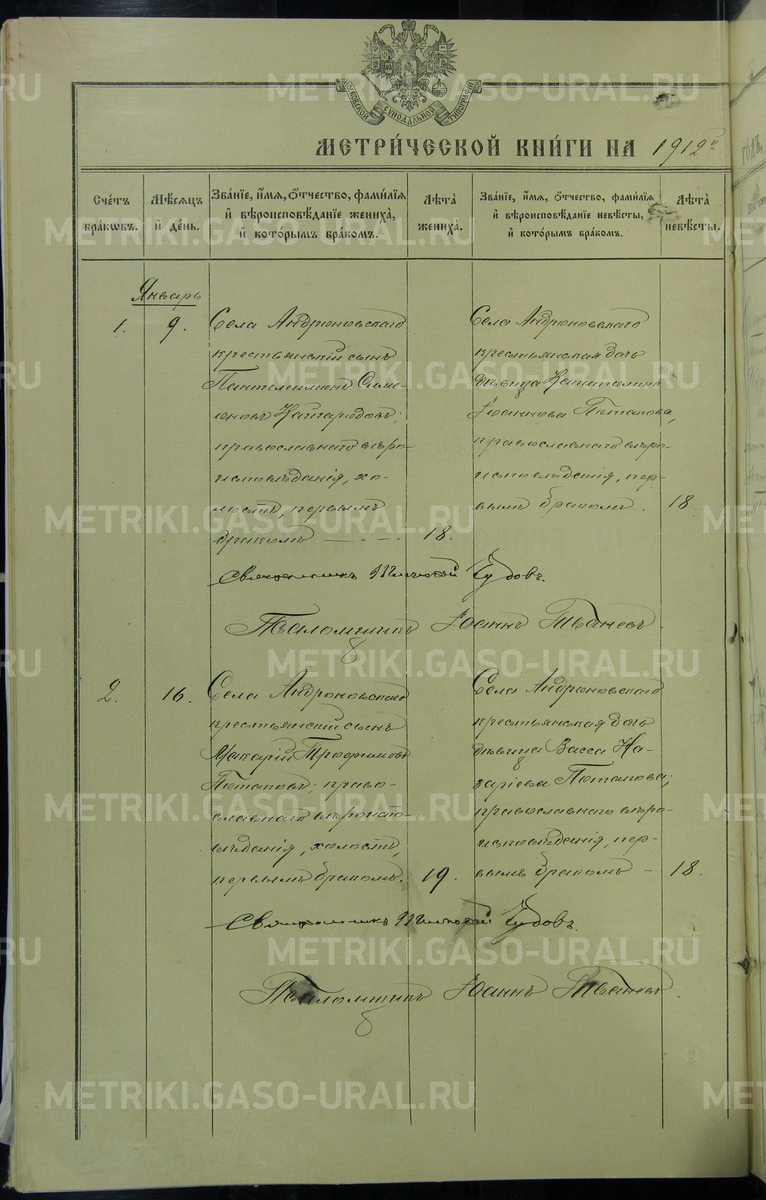 МОСКОВСКОЙ СѴНОДАЛЬНОЙ ТИПОГРАФІИ
МЕТРИ́ЧЕСКОЙ КНИ́ГИ НА 1912й
Сче́тъ бра́кωвъ.
Мѣ́сѧцъ и҆ де́нь.
Зва́нїе, и҆́мѧ, ѻ҆́тчество, фами́лїѧ и҆ вѣроисповѣ́данїе жениха̀, и҆ кото́рымъ бра́комъ.
Лѣ́та жениха̀.
Зва́нїе, и҆́мѧ, ѻ҆́тчество, фами́лїѧ и҆ вѣроисповѣ́данїе невѣ́сты, и҆ кото́рымъ бра́комъ.
Лѣ́та невѣ́сты.
Январь
1.
9.
Села Андроновскаго
крестьянскій сынъ
Пантелеимонъ Симе-
оновъ Кайгародовъ;
православнаго вѣро-
исповѣданія, хо-
лостъ, первымъ
бракомъ — „ —
18.
Села Андроновскаго
крестьянская дочь
дѣвица Капитолина
Іоаннова Потапова,
православнаго вѣро-
исповѣданія, пер-
вымъ бракомъ.
18.
Священникъ Николай Чудовъ.
Псаломщикъ Іоаннъ
2.
16.
Села Андроновскаго
крестьянскій сынъ
Макарій Трофимовъ
Потаповъ; право-
славнаго вѣроиспо-
вѣданія, холостъ,
первымъ бракомъ.
19.
Села Андроновскаго
крестьянская дочь
дѣвица Васса На-
заріева Потапова;
православнаго вѣро-
исповѣданія, пер-
вымъ бракомъ —
18.
Священникъ Николай Чудовъ.
Псаломщикъ Іоаннъ
METRIKI.GASO-URAL.RU